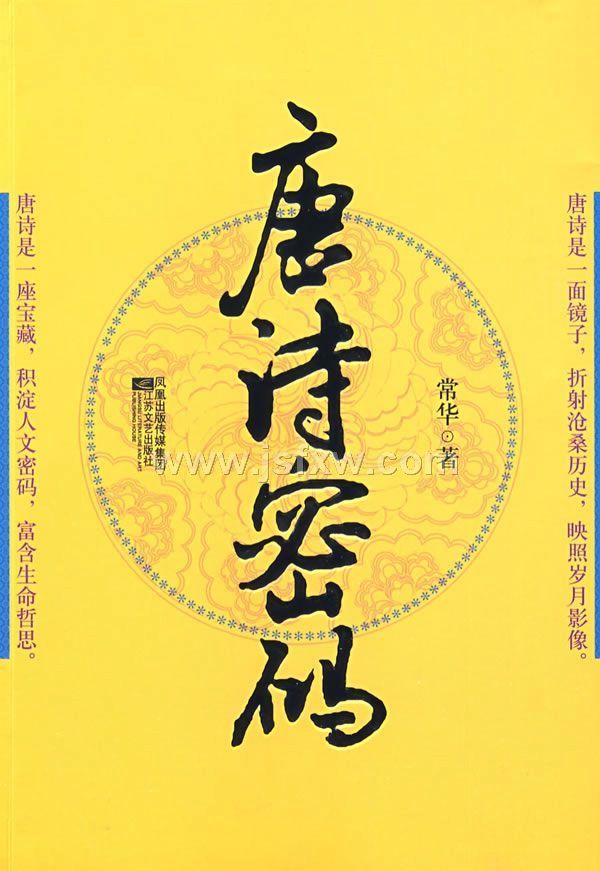 唐诗密码
唐诗是一面镜子，折射沧桑历史，映照岁月影像。
常华·著
凤凰出版传媒集团
江苏文艺出版社
JIANGSU LITERATURE AND ART
PUBLISHING HOUSE
唐诗是一座宝藏，积淀人文密码，富含生命哲思。
www.jsfxw.com